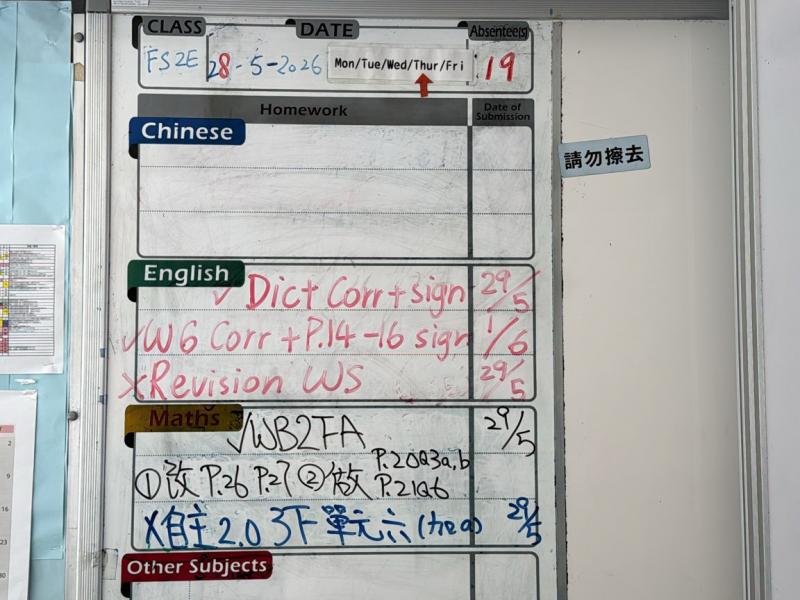 CLASS DATE Absentee(s)
FS2E 28-5-2026 Mon/Tue/Wed/Thur/Fri 19
Homework Date of Submission
Chinese
請勿擦去
English
✓ Dict Corr + sign 29/5
✓W6 Corr + P.14-16 sign 1/6
×Revision WS 29/5
Maths
✓WB2FA 29/5
①改 P.26 P.27 ②做 P.20Q3a,b P.21Q6
×自主2.0 3下單元六 29/5
Other Subjects